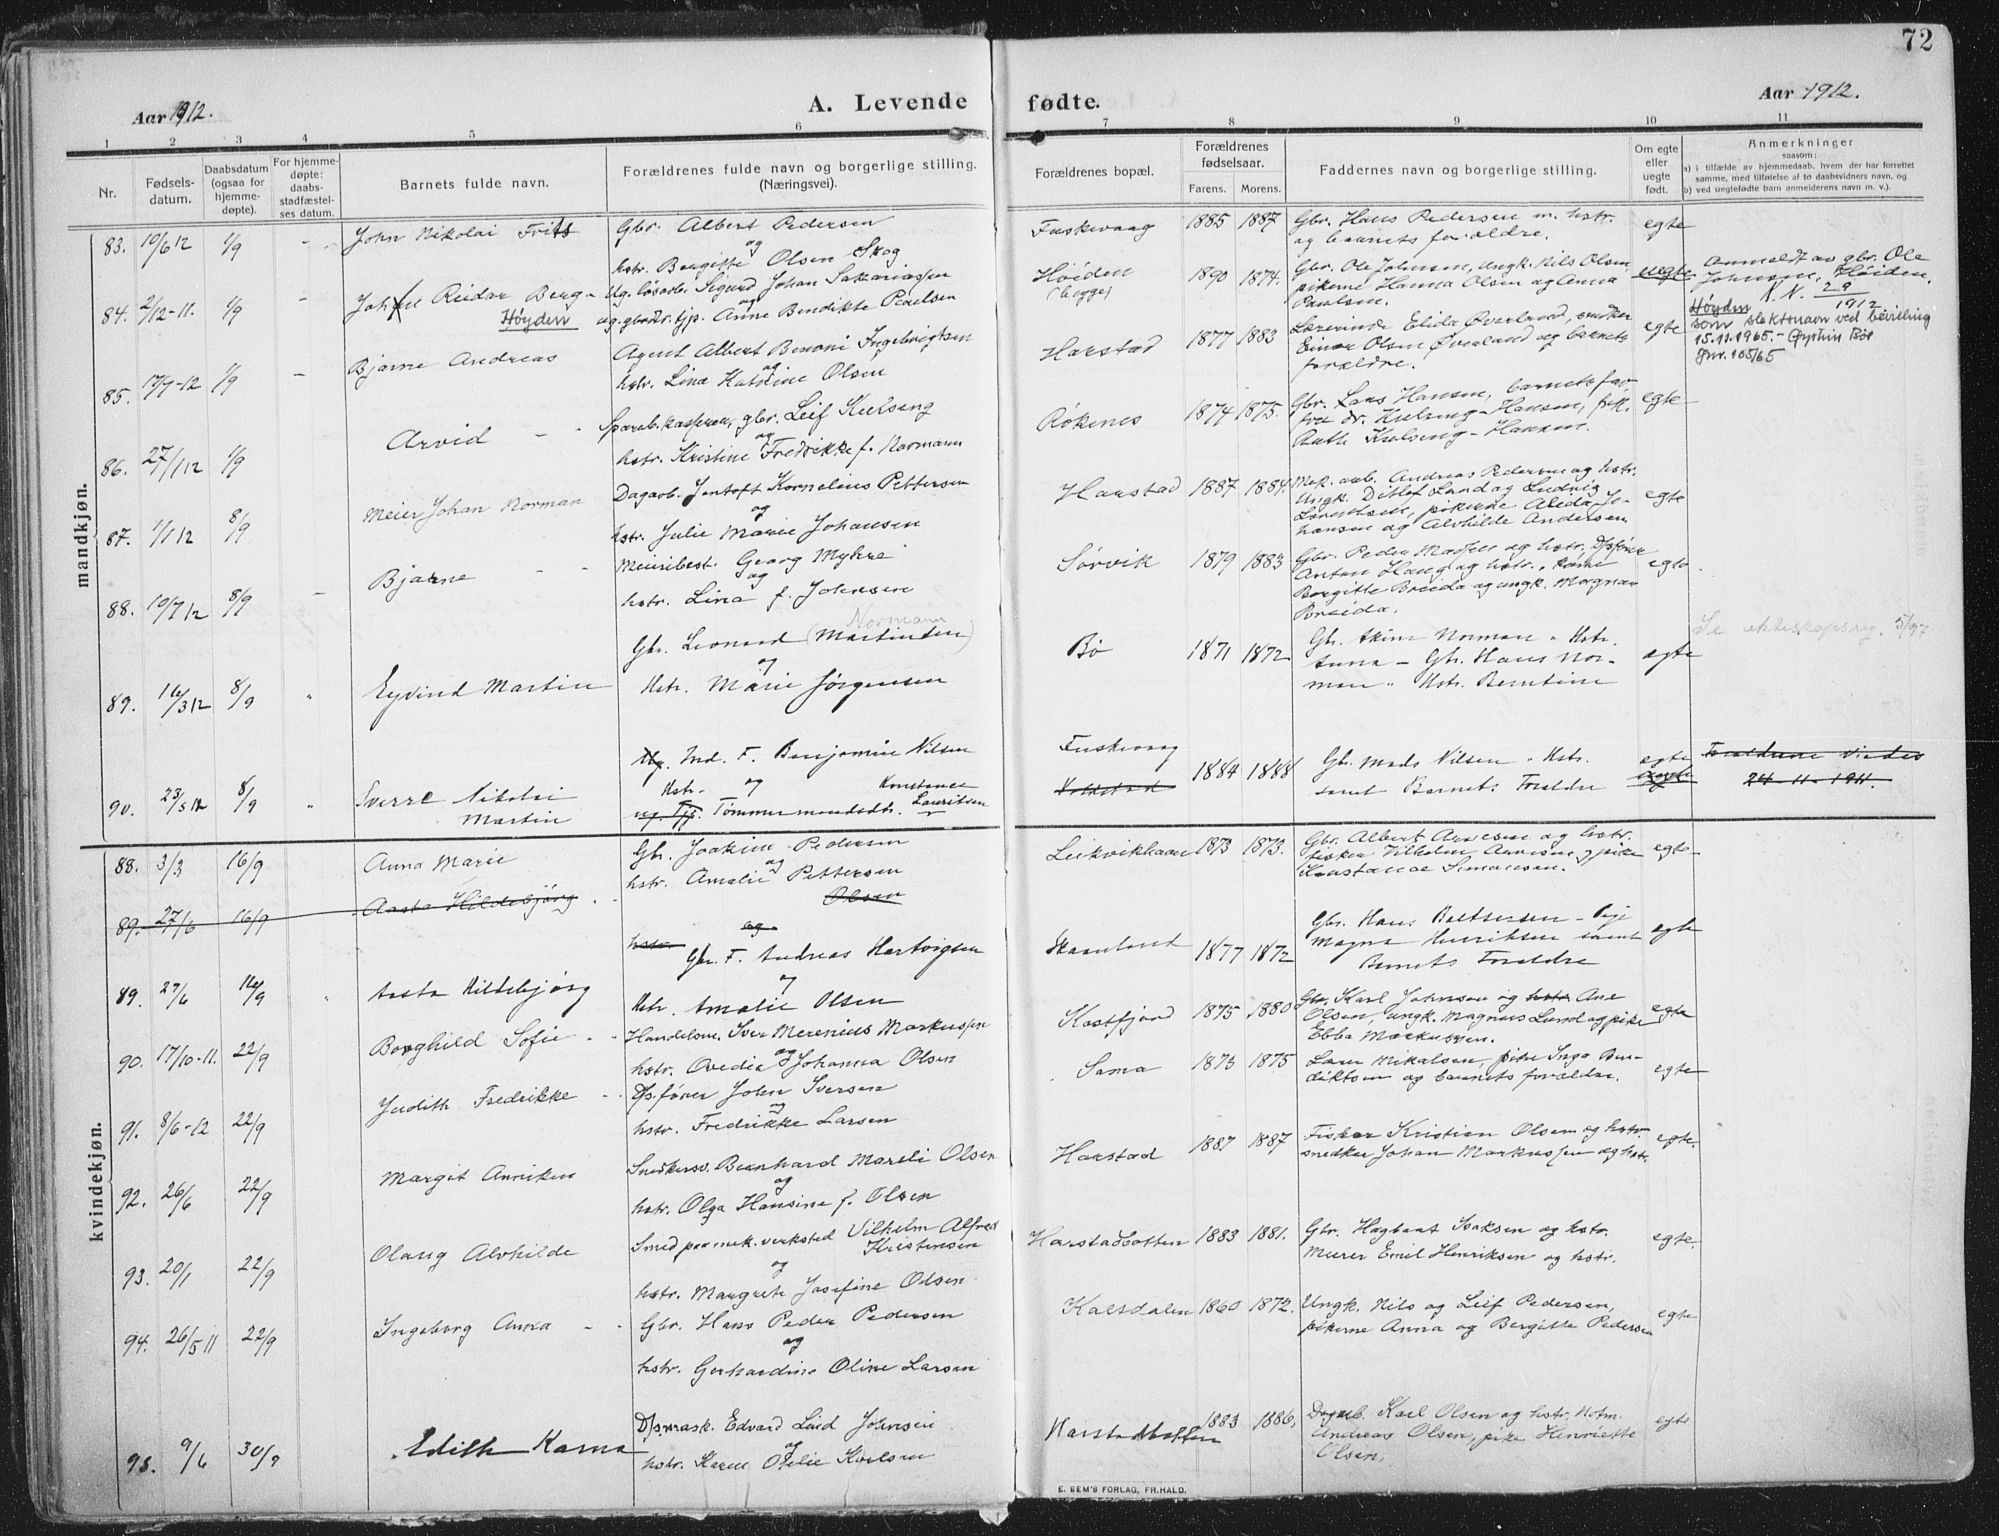 72
Aar 1912.
A. Levende
fødte.
Aar 1912.
1 2 3 4 5 6 7 8 9 10 11
Nr.
Fødsels-
datum.
Daabsdatum
(ogsaa for
hjemme-
døpte).
For hjemme-
døpte:
daabs-
stadfæstel-
ses datum.
Barnets fulde navn.
Forældrenes fulde navn og borgerlige stilling.
(Næringsvei).
Forældrenes bopæl.
Forældrenes
fødselsaar.
Farens. Morens.
Faddernes navn og borgerlige stilling.
Om egte
eller
uegte
født.
Anmerkninger
saasom:
a) i tilfælde av hjemmedaab, hvem der har forrettet
samme, med tilføielse af to daabsvidners navn, og
b) ved uegtefødte barn anmelderens navn m. v.).
mandkjøn.
83. 10/6 12 1/9 John Nikolai Frits
Gbr. Albert Pedersen
og
hstr. Bergitte Olsen Skog
Fuskevaag 1885 1887
Gbr. Hans Pedersen m. hstr.
og barnets forældre.
egte
84. 2/12-11. 1/9 Johan Reidar Berg-
Høyden
Ug. løsarb. Sigurd Johan Sakariassen
og
ug. gbrdtr. tjp. Anne Bendikte Paulsen
Høiden
(begge)
1890 1874.
Gbr. Ole Johnsen, ungk. Nils Olsen,
pikerne Hanna Olsen og Anna
Paulsen.
uegte
Anmeldt av gbr. Ole
Johnsen, Høiden.
N.N. 2/9
1912
Høyden
som slektsnavn ved bevilling
15.11.1965.-
gnr. 105/65
85. 17/7-12 1/9 Bjarne Andreas
Agent Albert Benoni Ingebrigtsen
og
hstr. Lina Katrine Olsen
Harstad 1877 1883
Lærerinde Elida Øverland, snedker
Einar Olsen Øverland og barnets
forældre.
egte
86. 27/1 12 1/9 Arvid
Spareb.kasserer, gbr. Leif Kulseng
og
hstr. Kristine Fredrikke f. Normann
Røkenes 1874 1875.
Gbr. Lars Hansen, barnets far
fru dr. Kulseng-Hansen, frk.
Ruth Kulseng-Hansen.
egte
87. 1/1 12 8/9 Meier Johan Norman
Dagarb. Jentoft Kornelius Pettersen
og
hstr. Julie Marie Johansen
Harstad 1887 1884.
Mek. arb. Andreas Pedersen og hstr.
Ungk. Ditlef Lund og Ludvig
pikerne Alida Jo-
hansen og Alvhilde Andersen
egte
88. 10/7 12 8/9 Bjarne
Meieribest. Georg Myhre
og
hstr. Lina f. Johnsen
Sørvik 1879 1883
Gbr. Peder Madsen og hstr. D/sfører
Anton Haug og hstr.,
Bergitte Breida og ungk. Magnus
Breida.
egte
89. 16/3 12 8/9 Eyvind Martin
Normann
Gbr. Leonard (Martinsen)
og
Hstr. Marie Jørgensen
Bø 1871 1872
Gbr. Akim Norman, Hstr.
Anna - Gbr. Hans Nor-
man, Hstr. Berntine
egte
Se ekteskapsreg. 5/97
90. 23/5 12 8/9 Sverre Nikolai
Martin
Ug. Ind. F. Benjamin Nilsen
Hstr. og Konstance
ug. Tjp. Tømmermandsdtr. Lauritsen
Fuskevaag
1884 1888
Gbr. Mads Nilsen, Hstr.
samt Barnets Forældre
egte
uegte
Forældrene viedes
24-11-1911.
kvindekjøn.
88. 3/3 16/9 Anna Marie
Gbr. Joakim Pedersen
og
hstr. Amalie Pettersen
Leikvikhaan 1873 1873.
Gbr. Albert Arnesen og hstr.
fisker Vilhelm Arnesen, pike
Konstance Simonsen.
egte
89. 27/6 16/9 Aasta Hildebjørg
Olsen
og
hstr.
89. 27/6 16/9 Aasta Hildebjørg
Gbr. F. Andreas Hartvigsen
og
Hstr. Amalie Olsen
Skaanland 1877 1872
Gbr. Hans Baltsersen - Pige
Magna Henriksen samt
Barnets Forældre
egte
90. 17/10-11. 22/9 Borghild Sofie
Handelsm. Iver Merenius Markussen
og
hstr. Ovedia Johanna Olsen
Kasfjord 1875 1880
Gbr. Karl Johnsen og hstr. Ane
Olsen, ungk. Magnus Lund og pike
Ebba Markussen.
egte
91. 8/6-12 22/9 Judith Fredrikke
D/sfører John Iversen
og
hstr. Fredrikke Larsen
Sama 1873 1875
Lærer Mikalsen, pike Inga Ben-
diktsen og barnets forældre.
egte
92. 26/6 22/9 Margit Anniken
Snedkersv. Bernhard Mareli Olsen
og
hstr. Olga Hansine f. Olsen
Harstad 1887 1887
Fisker Kristian Olsen og hstr.
snedker Johan Markussen og hstr.
egte.
93. 20/1 22/9 Olaug Alvhilde
Smed paa mek. verksted Vilhelm Alfred
Kristensen
og
hstr. Margrete Josefine Olsen
Harstadbotten 1883 1881.
Gbr. Hagbart Isaksen og hstr.
Murer Emil Henriksen og hstr.
egte.
94. 26/5 11 22/9 Ingeborg Anna
Gbr. Hans Peder Pedersen
og
hstr. Gerhardine Oline Larsen
Karsdalen 1860 1872.
Ungk. Nils og Leif Pedersen,
pikerne Anna og Bergitte Pedersen
egte
95. 9/6 30/9 Edith Karna
D/smask. Edvard Lind Johnsen
og
hstr. Karen Otelie Karlsen
Harstadbotten 1883 1886.
Dagarb. Karl Olsen og hstr. Holm.
Andreas Olsen, pike Henriette
Olsen.
egte
E. SEM'S FORLAG, FR.HALD.